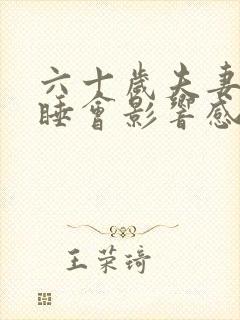 六十歲夫妻
睡會影響感
王荣琦